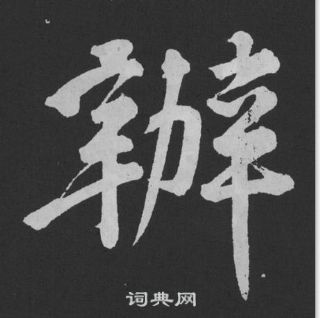 辦
词典网